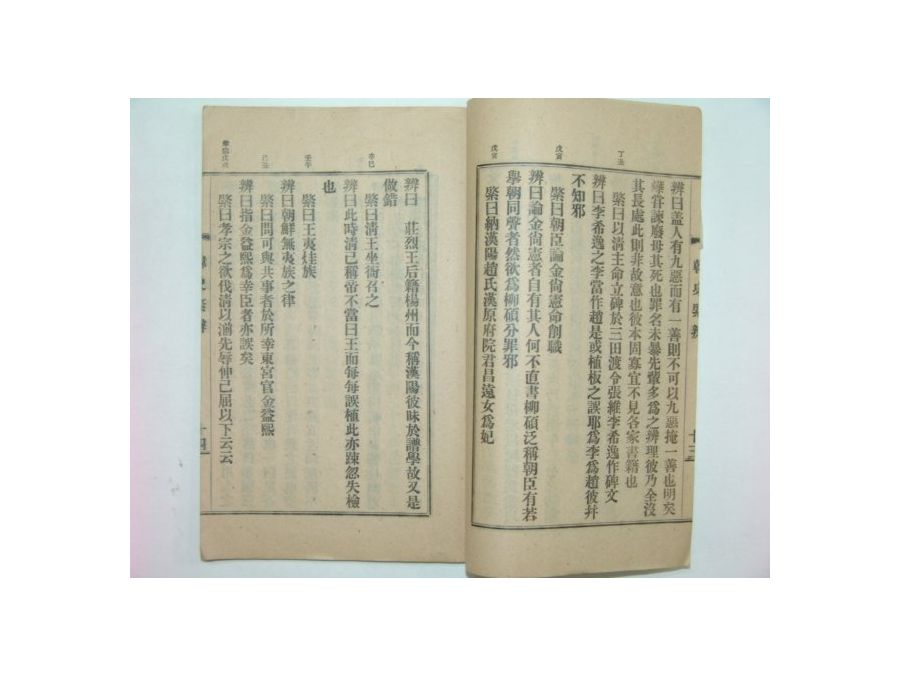 辨曰盖人有九惡而有一善則不可以九惡掩一善也明矣
嘗諫廢母其死也罪名未暴先輩多爲之辨理彼乃全沒
其長處此則非故意也彼本固寡宜不見各家書籍也
丁丑
綮曰以清主命立碑於三田渡令張維李希逸作碑文
辨曰李希逸之李當作趙是或植板之誤耶爲李爲趙彼幷
不知邪
戊寅
綮曰朝臣論金尙憲命削職
辨曰論金尙憲者自有其人何不直書柳碩泛稱朝臣有若
擧朝同聲者然欲爲柳碩分罪邪
戊寅
綮曰納漢陽趙氏漢原府院君昌遠女爲妃
十三
辨曰 莊烈王后籍楊州而今稱漢陽彼昧於譜學故又是
做錯
辛巳
綮曰清王坐衙召之
辨曰此時清已稱帝不當曰王而每每誤植此亦踈忽失檢
也
壬午
綮曰王夷烓族
辨曰朝鮮無夷族之律
綮曰問可與共事者於所幸東宮官金益熙
辨曰指金益熙爲幸臣者亦誤矣
綮曰孝宗之欲伐清以湔先辱伸己屈以下云云
十四